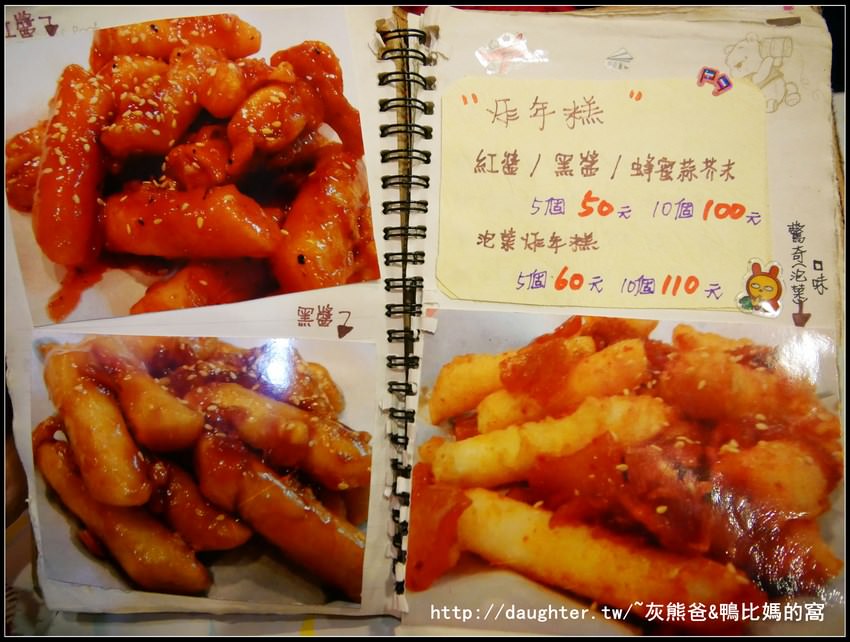 紅醬
黑醬
"炸年糕"
紅醬/黑醬/蜂蜜蒜芥末
5個 50元 10個 100元
泡菜炸年糕
5個 60元 10個 110元
驚奇泡菜口味
http://daughter.tw/~灰熊爸&鴨比媽的窩